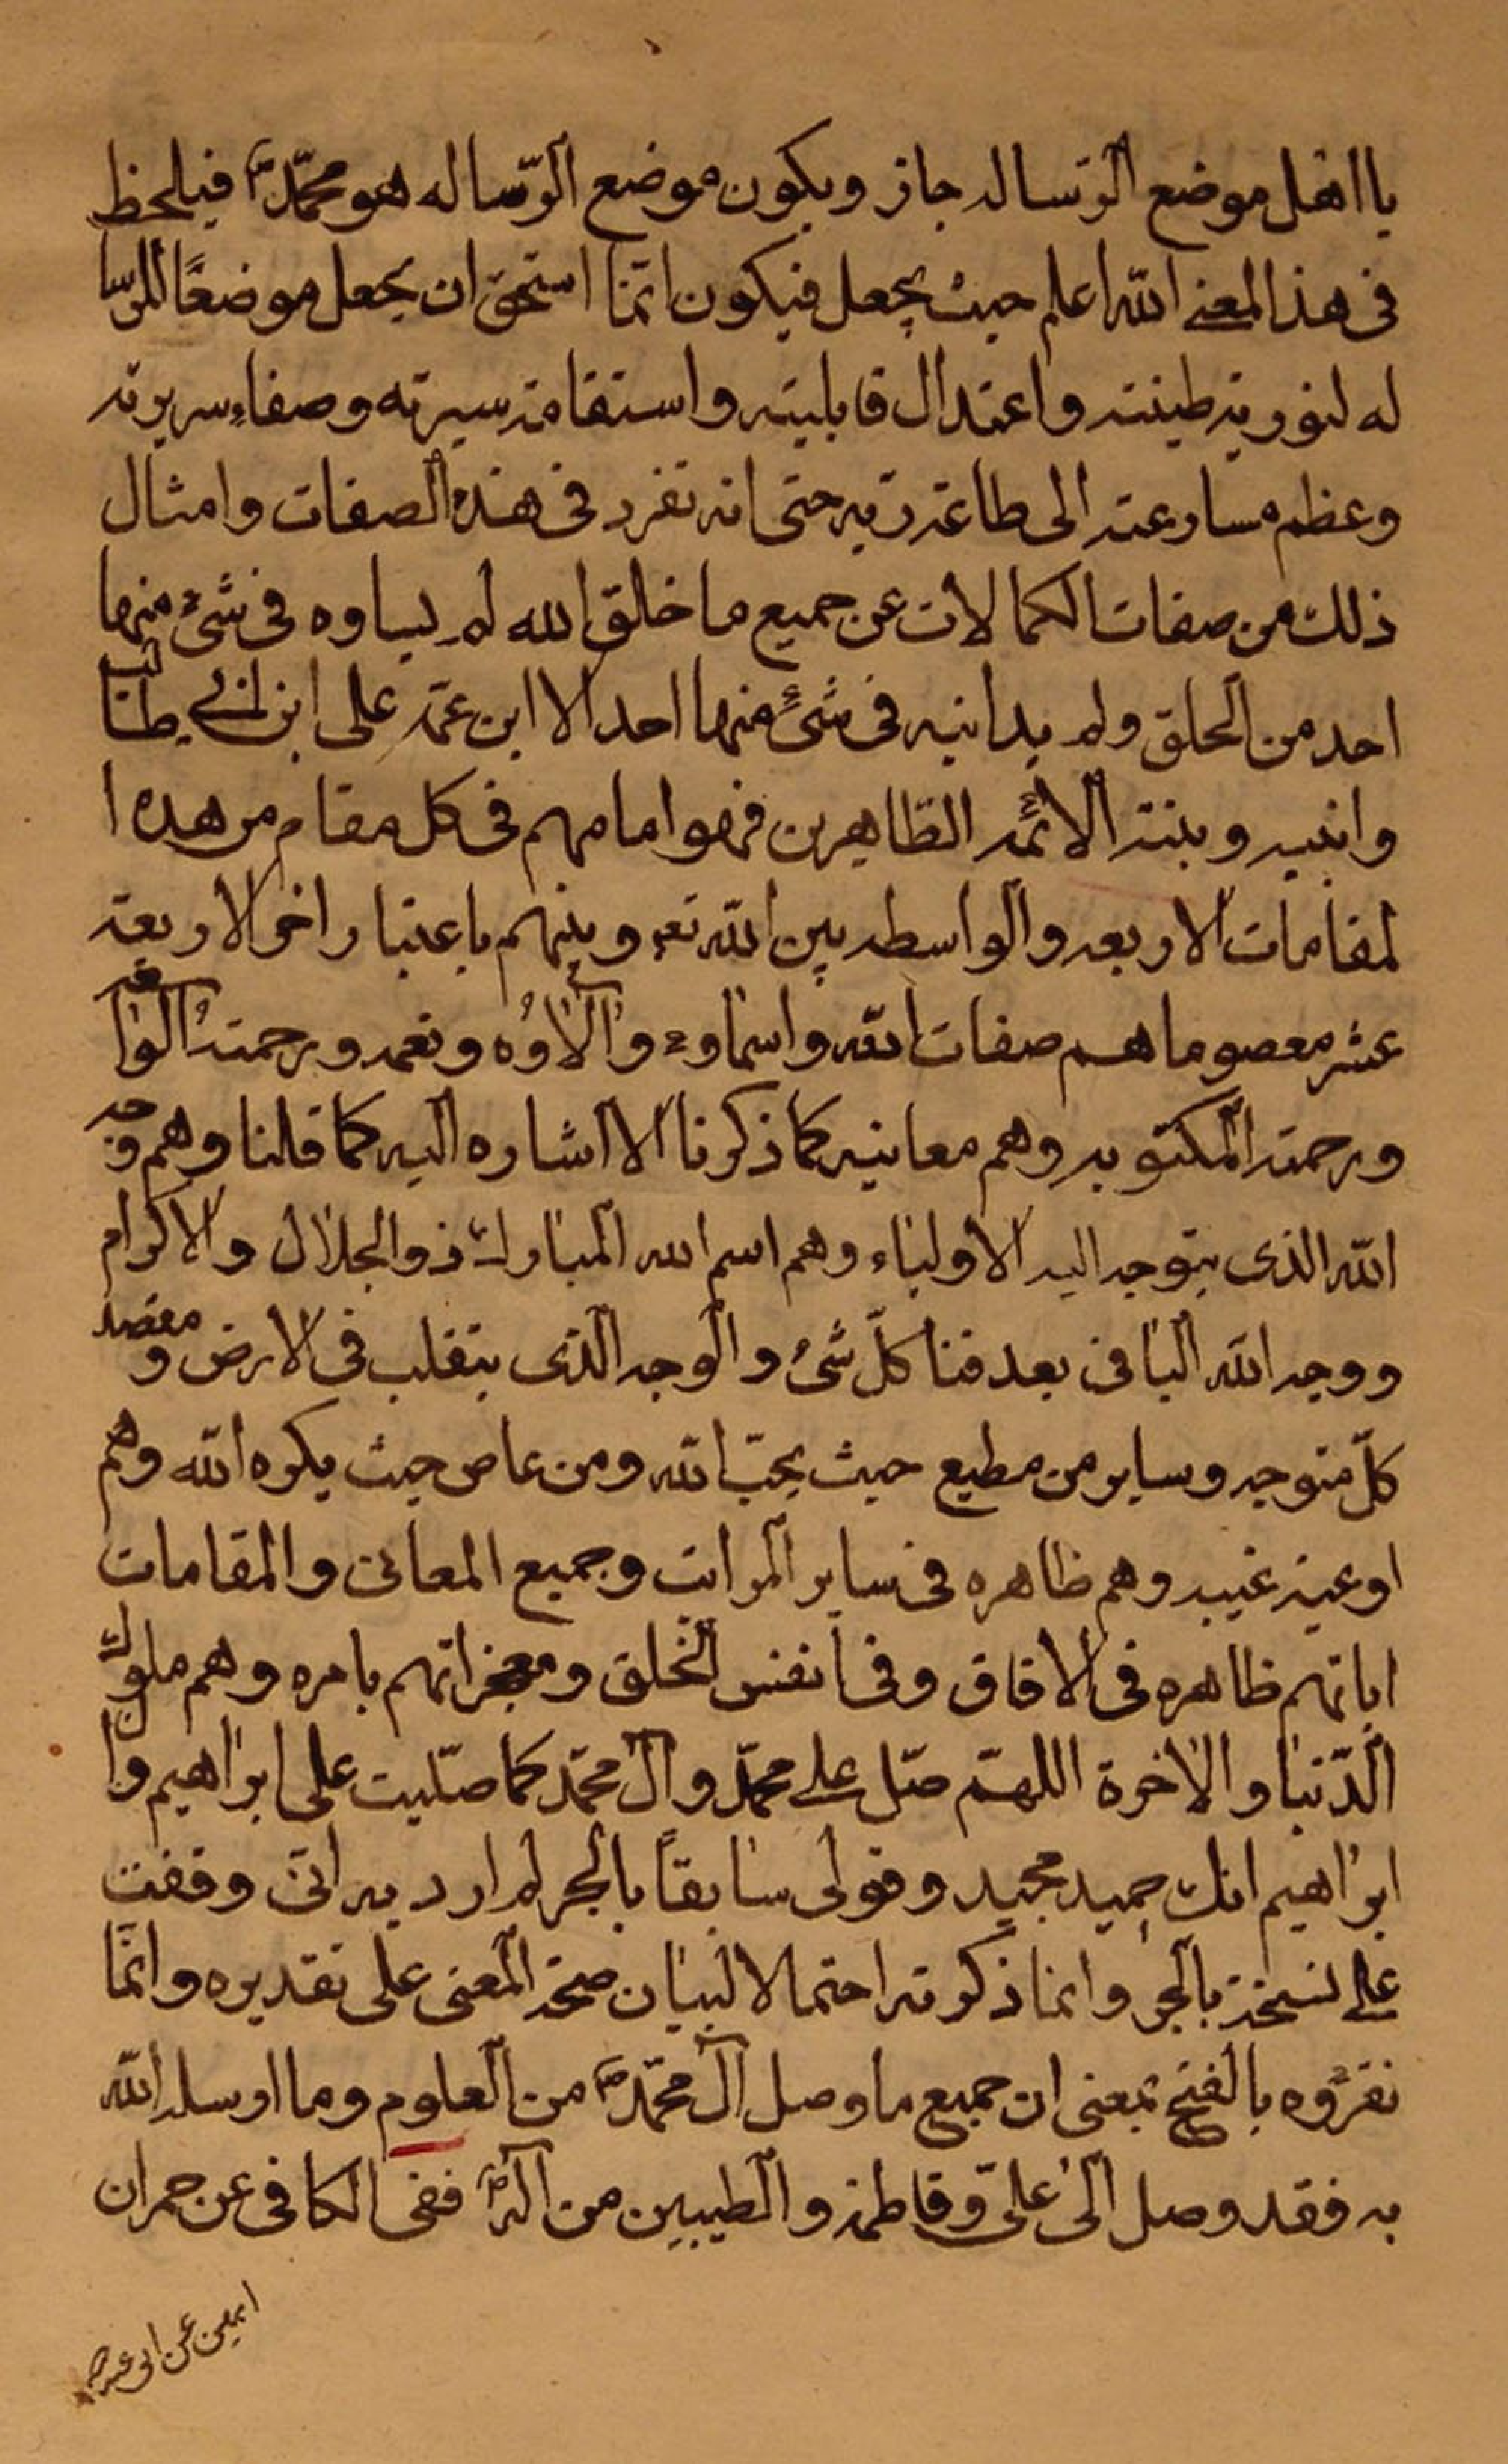 يا اهل موضع الرّساله جاز ويكون موضع الرّساله هو محمّد ص فيلحظ
فى هذا المعنى اللّه اعلم حيث يجعل فيكون انّما استحق ان يجعل موضعًا للرّسا
له لنورية طينته واعتدال قابليته واستقامة سيرته وصفاء سريرته
وعظم مسارعته الى طاعة ربه حتى انه تفرد فى هذه الصفات وامثال
ذلك من صفات الكمالات عن جميع ما خلق الله لم يساوه فى شئ منها
احد من الخلق ولم يدانيه فى شئ منها احد الا ابن عمّه على ابن ابي طالب
وابنيه وبنته الائمه الطّاهرين فهو امامهم فى كل مقام من هذه ا
لمقامات الاربعه والواسطه بين اللّه تعه وبينهم باعتبار اخر الاربعة
عشر معصوما هم صفات اللّه واسماوء والآؤه ونعمه ورحمته الواسعه
ورحمته المكتوبه وهم معانيه كما ذكرنا الا اشاره اليه كما قلنا وهم وجه
اللّه الذى يتوجه اليه الاولياء وهم اسم الله المبارك ذو الجلال والاكرام
ووجه اللّه الباقى بعد فنا كلّ شئ والوجه الّذى يتقلب فى الارض ومقصد
كلّ متوجه وساير من مطيع حيث يحبّ اللّه ومن عاص حيث يكره اللّه وهم
اوعية غيبه وهم ظاهره فى ساير المراتب وجميع المعانى والمقامات
اياتهم ظاهره فى الافاق وفى انفس الخلق ومعجزاتهم باهره وهم ملوك
الّدنيا والاخرة اللهمّ صّل على محمّد وآل محمّد كما صلّيت على ابراهيم وا
ابراهيم انك حميد مجيد وقولى سابقًا بالجر لم ارد به انّى وقفت
على نسخة بالجر وانما ذكرته احتمالا لبيان صحة المعنى على تقديره وانّما
نقرؤه بالفتح بمعنى ان جميع ما وصل آل محمّد ص من العلوم وما ارسله اللّه
به فقد وصل الى علىّ وفاطمة والطيبين من آله ففى الكافى عن حمران
ابن اعين عن ابى عبد